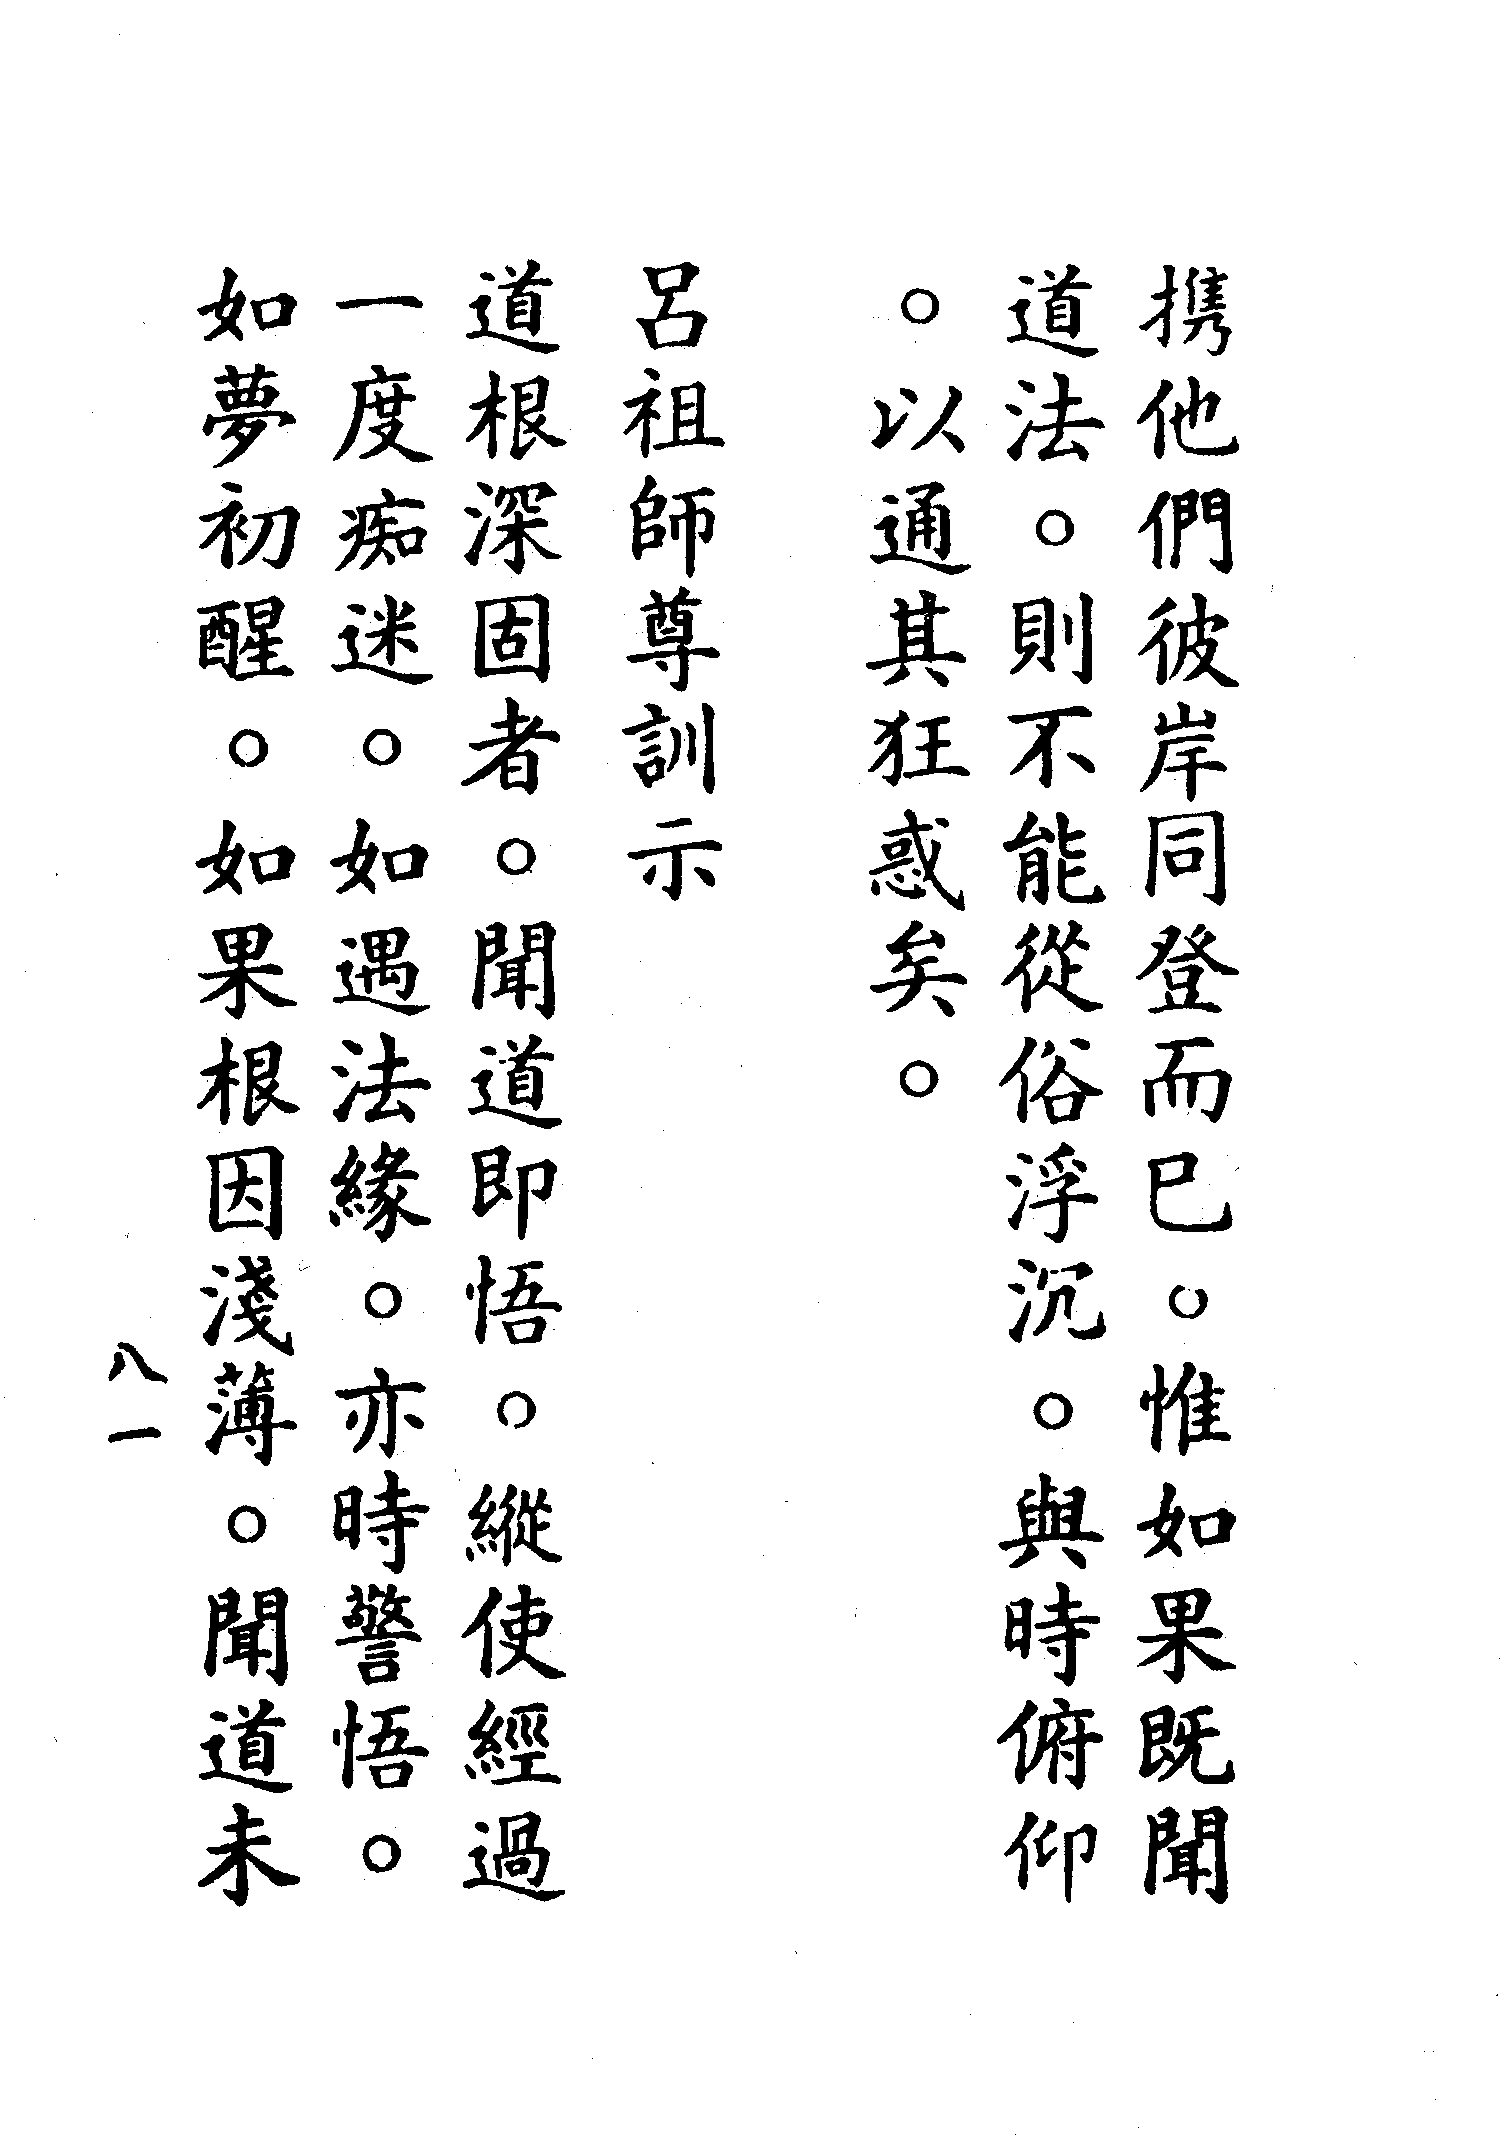 携他們彼岸同登而已。惟如果既聞
道法。則不能從俗浮沉。與時俯仰
。以通其狂惑矣。
呂祖師尊訓示
道根深固者。聞道即悟。縱使經過
一度痴迷。如遇法緣。亦時警悟。
如夢初醒。如果根因淺薄。聞道未
八一